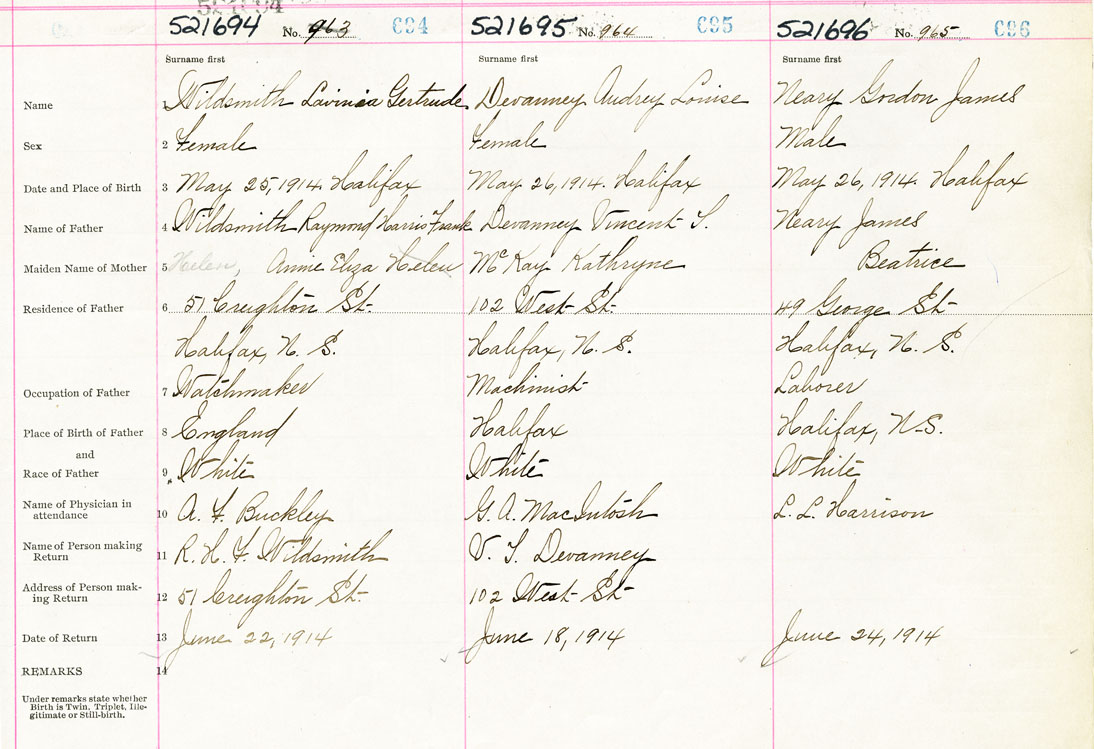 521694 No. 963 C94 521695 No. 964 C95 521696 No. 965 C96
Surname first Surname first Surname first
Name 1 Wildsmith Lavinia Gertrude Devanney Audrey Louise Neary Gordon James
Sex 2 Female Female Male
Date and Place of Birth 3 May 25, 1914. Halifax May 26, 1914. Halifax May 26, 1914. Halifax
Name of Father 4 Wildsmith Raymond Harris Frank Devanney Vincent S. Neary James
Maiden Name of Mother 5 Helen, Annie Eliza Helen McKay Kathryne Beatrice
Residence of Father 6 51 Creighton St. 102 West St. 49 George St
Halifax, N. S. Halifax, N. S. Halifax, N. S.
Occupation of Father 7 Watchmaker Machinist Laborer
Place of Birth of Father 8 England Halifax Halifax, N.S.
and
Race of Father 9 White White White
Name of Physician in
attendance 10 A. F. Buckley G. A. MacIntosh L. L. Harrison
Name of Person making
Return 11 R. H. F. Wildsmith V. S. Devanney
Address of Person mak-
ing Return 12 51 Creighton St. 102 West St
Date of Return 13 June 22, 1914 June 18, 1914 June 24, 1914
REMARKS 14
Under remarks state whether
Birth is Twin, Triplet, Ille-
gitimate or Still-birth.